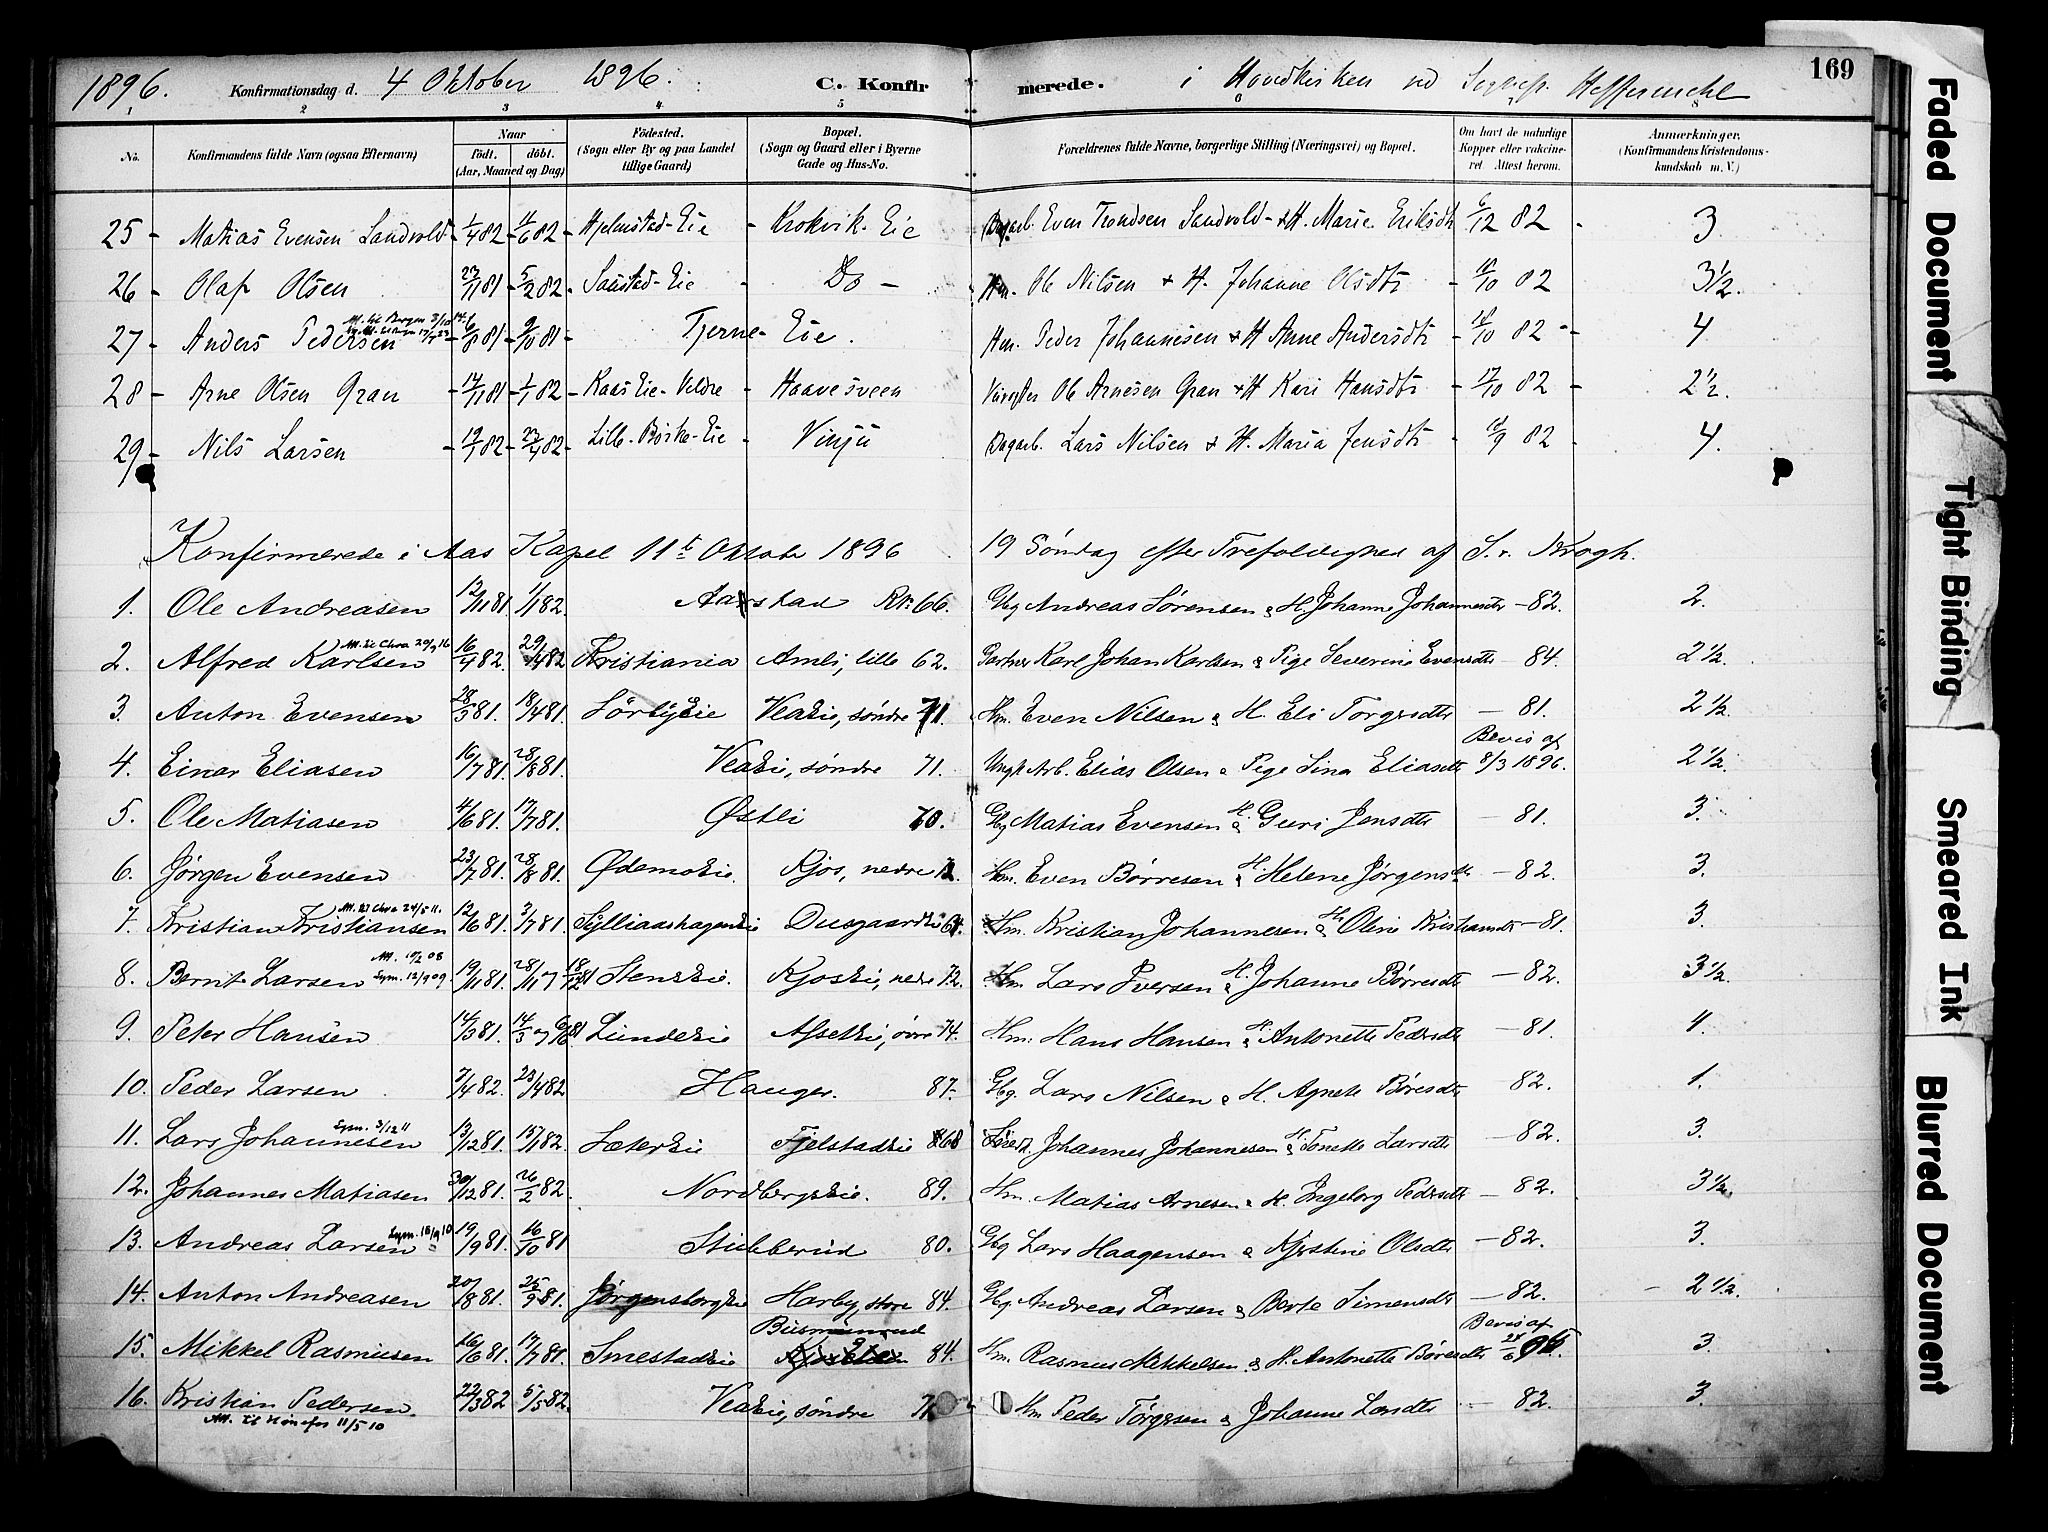 169
1896. Konfirmationsdag d. 4 Oktober 1896. C. Konfir merede. i Hovedkirken ved
1 2 3 4 5 6 7 8
No. Konfirmandens fulde Navn (ogsaa Efternavn) Naar födt. döbt. (Aar, Maaned og Dag) Födested. (Sogn eller By og paa Landet tillige Gaard) Bopæl. (Sogn og Gaard eller i Byerne Gade og Hus-No. Forældrenes fulde Navne, borgerlige Stilling (Næringsvei) og Bopæl. Om havt de naturlige Kopper eller vakcineret. Attest herom. Anmærkninger. (Konfirmandens Kristendomskundskab m. V.)
25 - Matias Evensen Sandvold - 1/4 82 - 11/6 82 - Hjelmstad-Eie - Krokvik-Eie Dagarb. Even Trondsen Sandvold - & H. Marie Eriksdtr 6/12 82 - 3
26 - Olaf Olsen 23/11 81 - 5/2 82 - Saastad-Eie Do - Hm. Ole Nilsen & H. Johanne Olsdtr - 18/10 82 3½.
27 - Anders Pedersen - 16/8 81 - 9/10 81 - Tjerne-Eie. Hm. Peder Johannesen & H Anne Andersdtr - 18/10 82 - 4
28 - Arne Olsen Gran - 14/11 81 - 1/1 82 - Kaas Eie - Veldre - Haavesveen Ole Arnesen Gran & H Kari Hansdtr - 17/10 82 - 2½.
29 - Nils Larsen - 19/1 82 - 23/4 82 - Lille-Börke-Eie - Vinju Dagarb. Lars Nilsen & H. Maria Jensdtr - 18/9 82 - 4.
Konfirmerede i Aas Kapel 11te Oktober 1896 19 Söndag efter Trefoldighed af S. v. Krogh.
1. Ole Andreasen 12/11 81. 1/1 82. Aarstad 66. Gbg Andreas Sörensen & H. Johanne Johannesdtr - 82. 2.
2. Alfred Karlsen Att. til Chra 20/9 16 16/4 82. 29/4 82 Kristiania Amli, lille 62. Gartner Karl Johan Karlsen & Pige Severine Evensdtr - 84. 2½.
3. Anton Evensen 28/3 81. 18/4 81. Sörbyeie Veaeie, söndre 71. Hm. Even Nilsen & H. Eli Torgersdtr - 81. 2½.
4. Einar Eliasen 16/7 81. 28/8 81. Veaeie, söndre 71. Ungk. Arb. Elias Olsen & Pige Lina Eliasdtr Bevis af 8/3 1896. 2½.
5. Ole Matiasen 4/6 81. 17/7 81. Østli 70. Gbg Matias Evensen & H. Guri Jensdtr - 81. 3.
6. Jörgen Evensen 23/7 81. 28/8 81. Ødemoeie. Kjos, nedre 72. Hm. Even Börresen & H. Helene Jörgensdtr - 82. 3.
7. Kristian Kristiansen Att. til Chra 24/5 11. 12/6 81. 3/7 81. Dusgaardeie Hm. Kristian Johannesen & H. Oline Kristiansdtr - 81. 3.
8. Bernt Larsen Att. 19/2 08 Sym. 12/9 09 19/11 81. 28/11 & 18/12 81 Stenseie. Kjoseie, nedre 72. Hm Lars Iversen & H. Johanne Börresdtr - 82. 3½.
9. Peter Hansen 14/3 81. 14/3 & 6/6 81 Lundeeie Afseteie, övre 74. Hm. Hans Hansen & H. Antonette Pedersdtr - 81. 4.
10. Peder Larsen 7/4 82. 23/4 82 Hauger. 87. Gbg. Lars Nilsen & H. Agnete Börresdtr 82. 1.
11. Lars Johannesen Sym. 3/12 11 13/12 81. 15/1 82. Sætereie Fjelstadeie 68 Johannes Johannesen & H. Tonette Larsdtr - 82. 3.
12. Johannes Matiasen 30/12 81. 26/2 82. Nordbergseie. 89. Hm. Matias Arnesen & H. Ingeborg Pedersdtr - 82. 3½.
13. Andreas Larsen Sym. 18/9 10 19/9 81. 16/10 81 Stubberud 80. Gbg Lars Haagensen & Kjerstine Olsdtr - 82. 3.
14. Anton Andreasen 20/8 81. 25/9 81. Jörgensborgeie Harby, store 84. Gbg Andreas Larsen & Berte Simensdtr - 82. - 2½.
15. Mikkel Rasmusen 26/6 81. 17/7 81. Smestadeie Busmunrud 84. Hm. Rasmus Mikkelsen & H. Antonette Börresdtr Bevis af 96. 3.
16. Kristian Pedersen. Att. til Hönefos 11/5 10 22/3 82 5/5 82. Veaeie, söndre 72 Hm Peder Törgersen & Johanne Larsdtr - 82. 3.
Faded Document
Tight Binding
Smeared Ink
Blurred Document